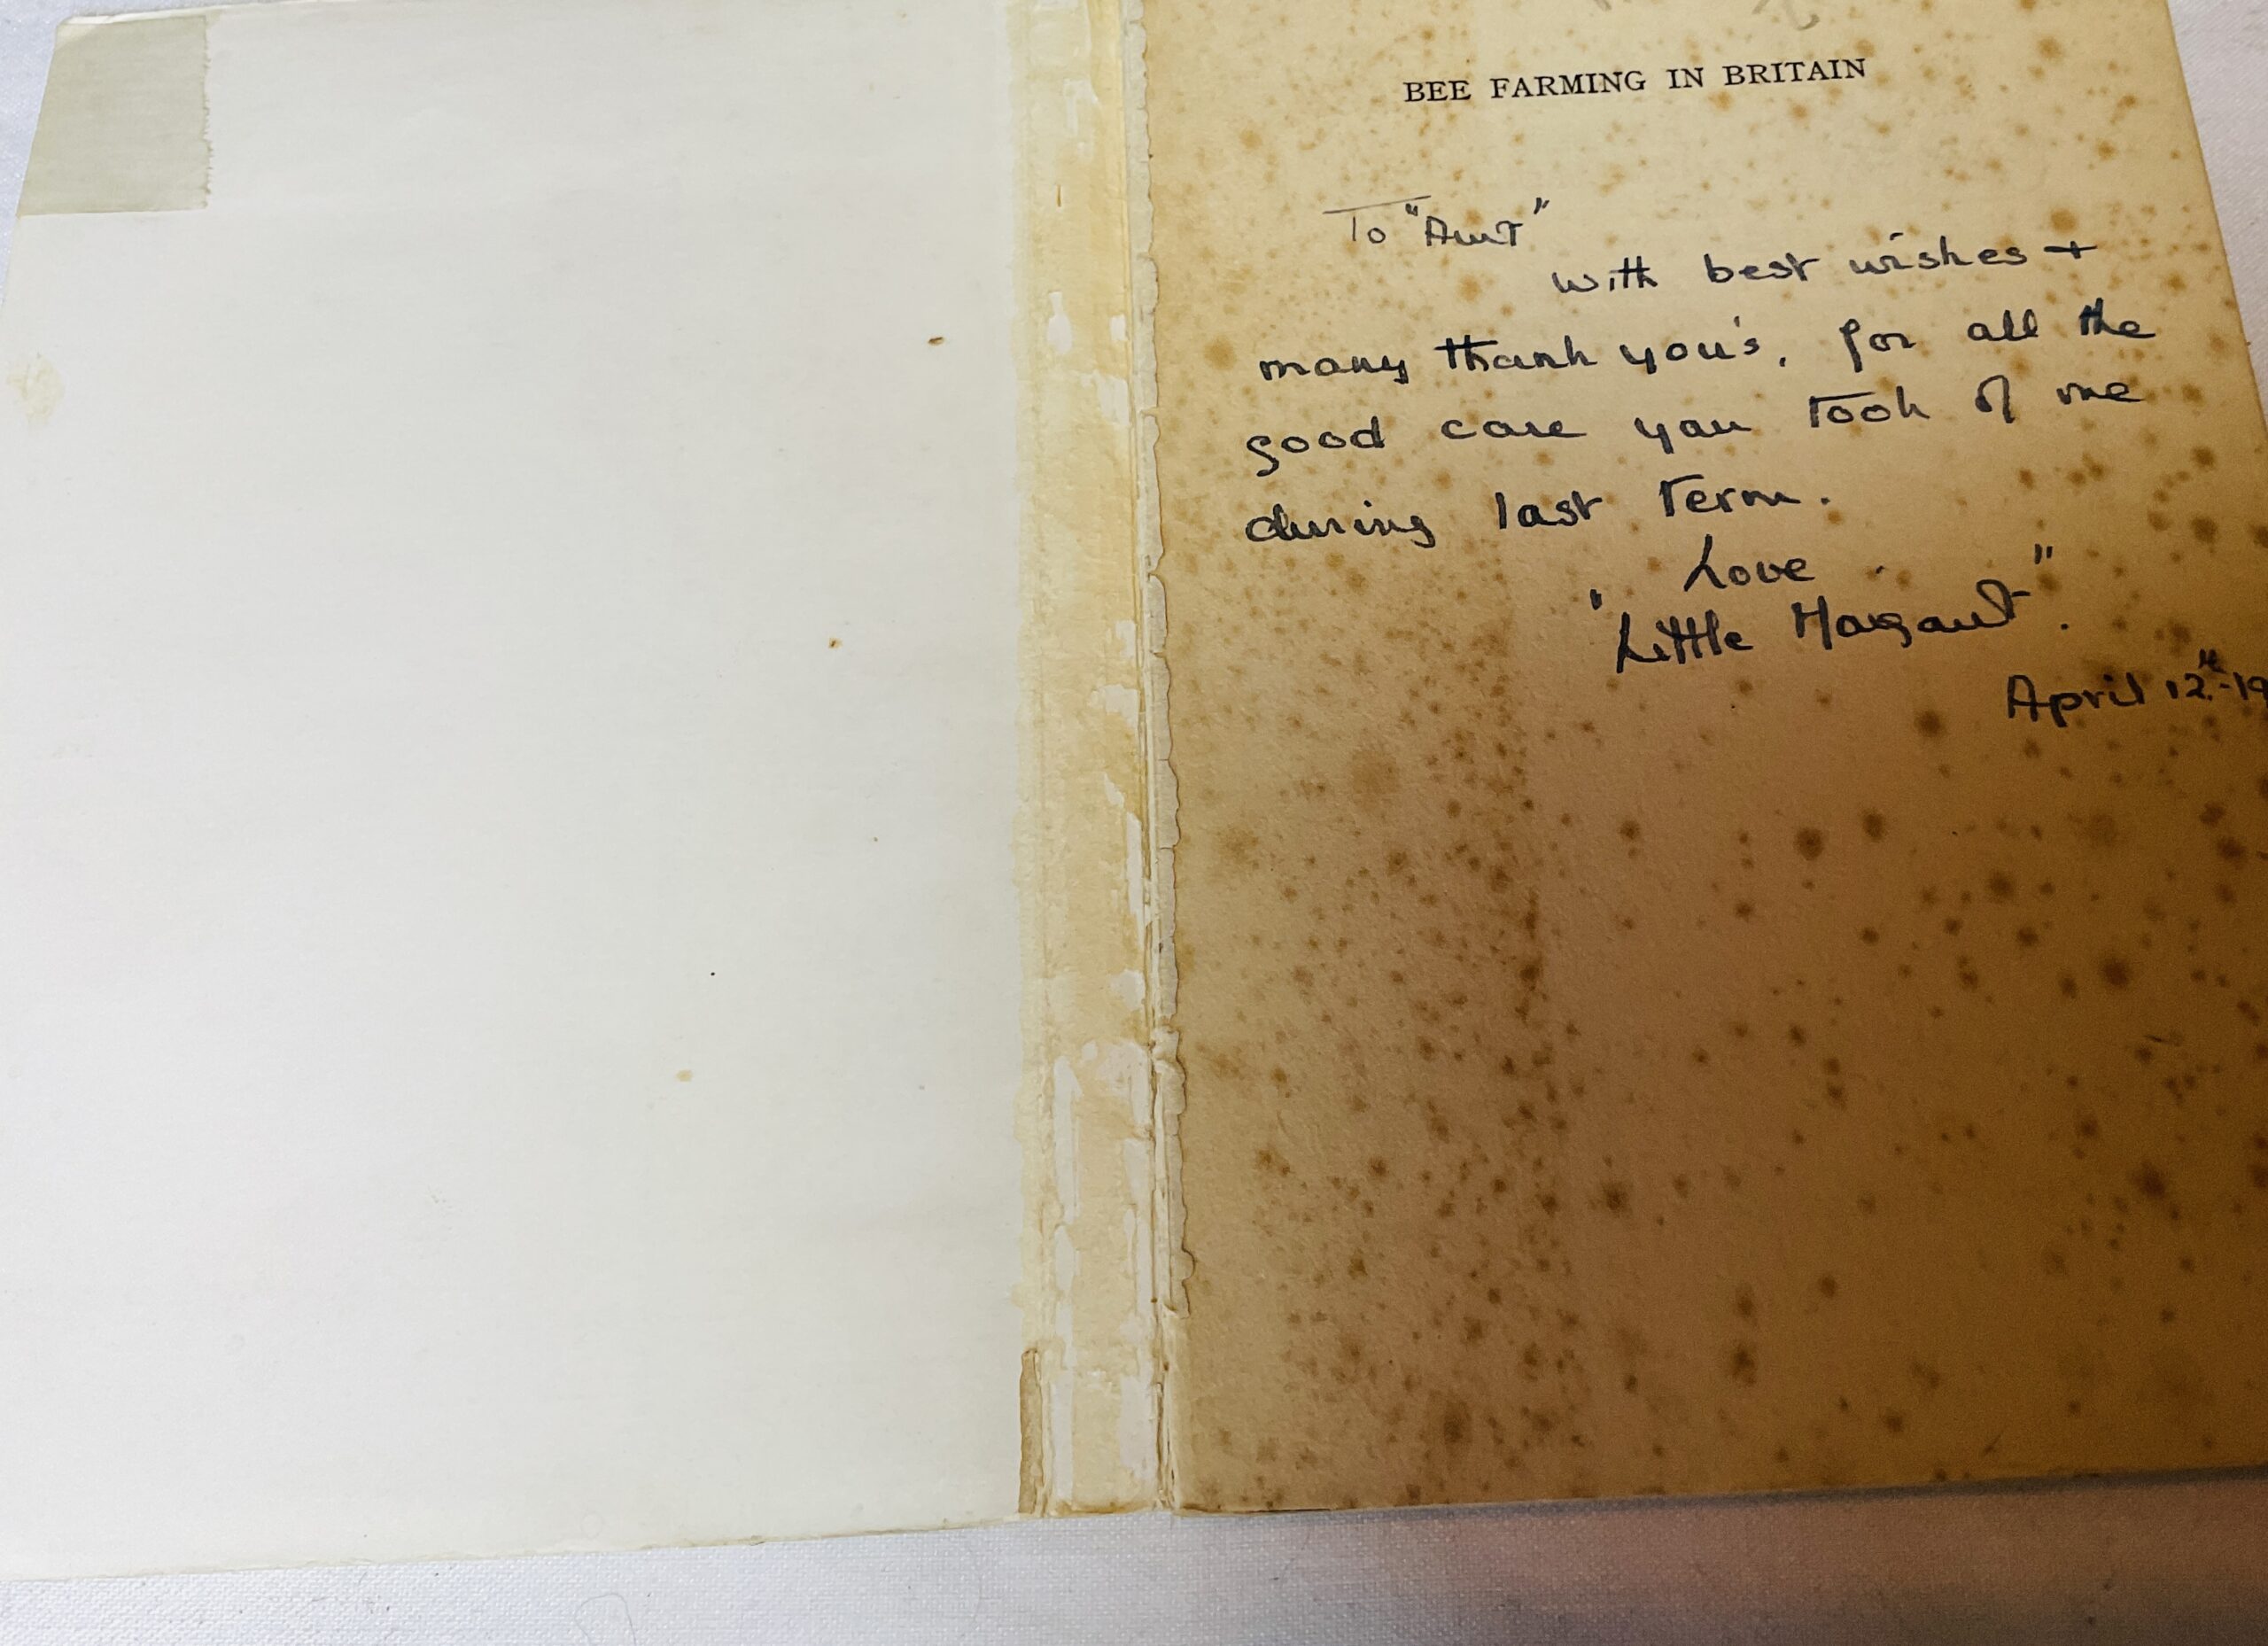 BEE FARMING IN BRITAIN
To "Aunt"
with best wishes +
many thank you's, for all the
good care you took of me
during last term.
Love
"Little Margaret".
April 12th-19